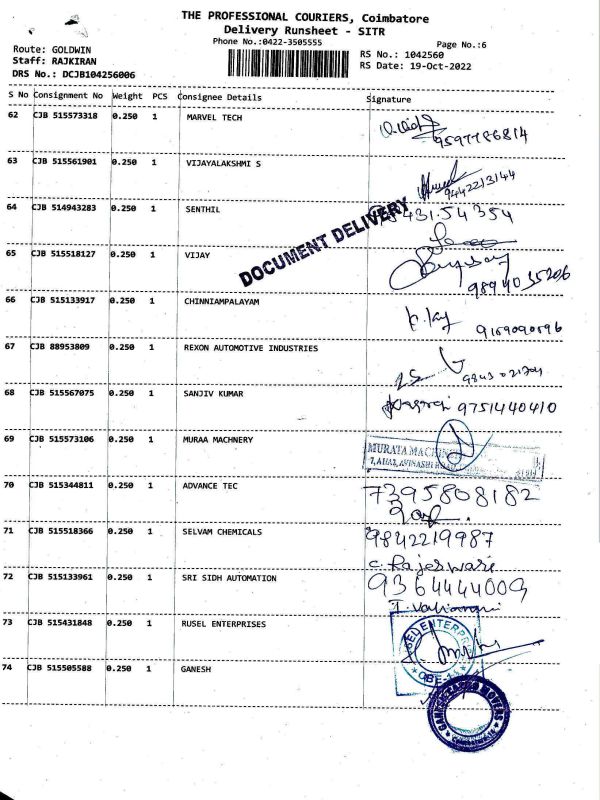 THE PROFESSIONAL COURIERS, Coimbatore
Delivery Runsheet - SITR
Phone No.:0422-3505555
Page No.:6
Route: GOLDWIN
RS No.: 1042560
Staff: RAJKIRAN
RS Date: 19-Oct-2022
DRS No.: DCJB104256006
S No Consignment No Weight PCS Consignee Details Signature
62 CJB 515573318 0.250 1 MARVEL TECH
9597786814
63 CJB 515561901 0.250 1 VIJAYALAKSHMI S
9442213144
64 CJB 514943283 0.250 1 SENTHIL
431.54 354
DOCUMENT DELIVERY
65 CJB 515518127 0.250 1 VIJAY
9894035206
66 CJB 515133917 0.250 1 CHINNIAMPALAYAM
67 CJB 88953809 0.250 1 REXON AUTOMOTIVE INDUSTRIES
68 CJB 515567075 0.250 1 SANJIV KUMAR
9751440410
69 CJB 515573106 0.250 1 MURAA MACHNERY
MURATA MACHINE
70 CJB 515344811 0.250 1 ADVANCE TEC
7395808182
71 CJB 515518366 0.250 1 SELVAM CHEMICALS
9842219987
C. Rajeswari
72 CJB 515133961 0.250 1 SRI SIDH AUTOMATION
9364444009
73 CJB 515431848 0.250 1 RUSEL ENTERPRISES
74 CJB 515505588 0.250 1 GANESH